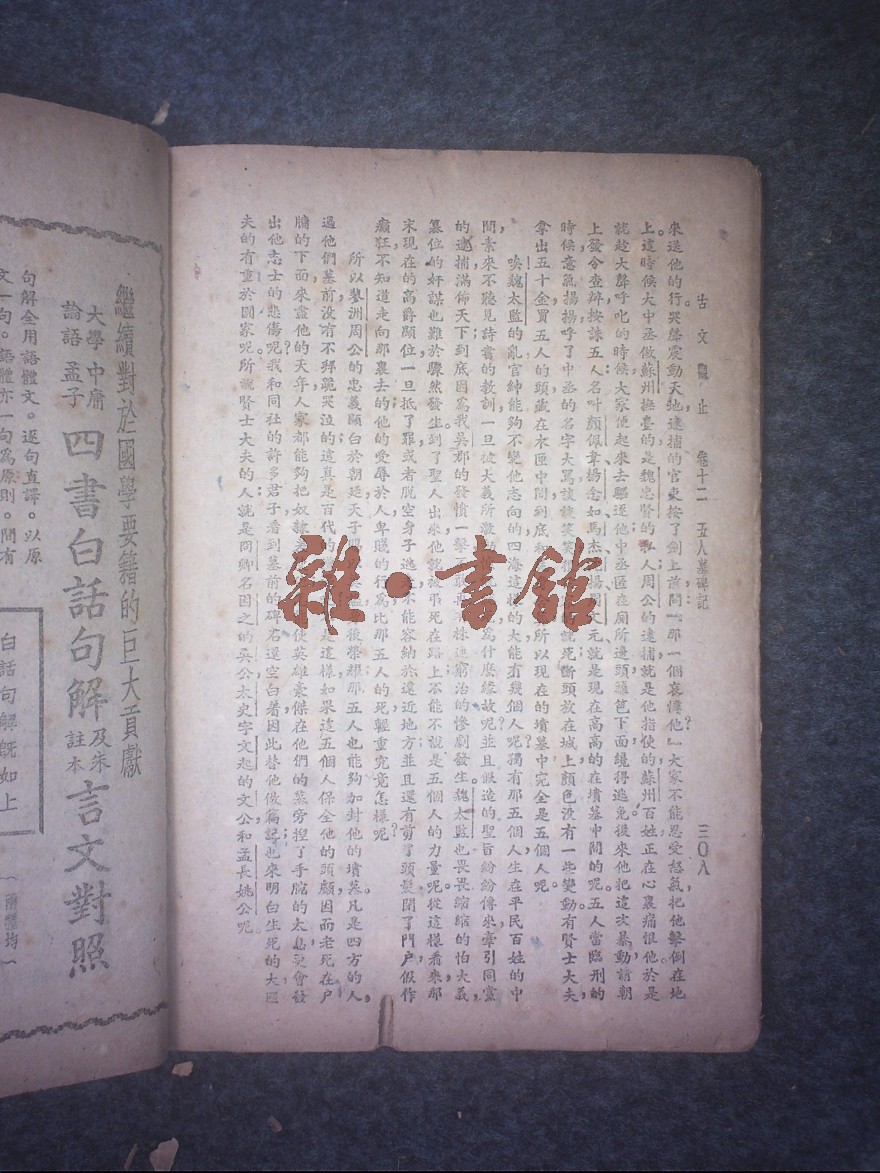 古文觀止　卷十二　五人墓碑記　三〇八
來送他的行。哭聲震動天地。逮捕的官吏按了劍上前問『那一個哀憐他？』大家不能忍受怒氣，把他擊倒在地
上。這時候大中丞做蘇州撫臺的，是魏忠賢的私人，周公的逮捕就是他指使的；蘇州百姓正在心裏痛恨他。於是
就趁大聲呼叱的時候，大家便起來去驅逐他。中丞匿在廁所邊頭籬笆下面纔得逃免。後來他把這次暴動請朝
上發令查辦，按誅五人，名叫顏佩韋、楊念如、馬杰、揚、周文元，就是現在高高的在墳墓中間的呢。五人當臨刑的
時候，意氣揚揚，呼了中丞的名字大罵，談談笑笑就死，斷頭放在城上，顏色沒有一些變動。有賢士大夫，
拿出五十金買五人的頭藏在木匣中間，到底和所以現在的墳墓中完全是五個人呢。
唉，魏太監的亂，官紳能夠不變他志向的，四海這樣的大，能有幾個人呢？獨有那五個人生在平民百姓的中
間，素來不聽見詩書的教訓，一旦被大義所激爲什麼緣故呢？並且假造的聖旨紛紛傳來，牽引同黨
的逮捕滿佈天下，到底因爲我吳郡的發憤一擊株連窮治的慘劇發生。魏太監也畏畏縮縮的怕大義，
篡位的奸謀也難於驟然發生。到了聖人出來，他就被弔死在路上，不能不說是五個人的力量呢。從這樣看來，那
末現在的高爵顯位，一旦抵了罪，或者脫空身子逃不能容納於遠近地方，並且還有剪了頭髮閉了門户，假作
癲狂不知道走向那裏去的，他的受辱於人卑賤的行爲，比那五人的死，輕重究竟怎樣呢？
所以蓼洲周公的忠義顯白於朝廷，天子後榮耀。那五人也能夠加封他的墳墓。凡是四方的人，
過他們墓前沒有不拜跪哭泣的，這真是百代的這樣。如果這五個人保全他的頭顱，因而老死在户
牖的下面，來盡他的天年，人家都能夠把奴隸使英雄豪傑在他們的墓旁捏了手腕的太息，更會發
出他志士的悲傷呢？我和同社的許多君子，看到墓前的碑石還空白着，因此替他做篇記，也來明白生死的大，匹
夫的有重於國家呢。所說賢士大夫的人，就是冏卿名因之的吳公，太史字文起的文公和孟長姚公呢。
雜·書館
繼續對於國學要籍的巨大貢獻
大學中庸
論語孟子
四書白話句解及朱註本言文對照
句解全用語體文。逐句直譯。以原
文一句。語體亦一句爲原則。間有
白話句解旣如上